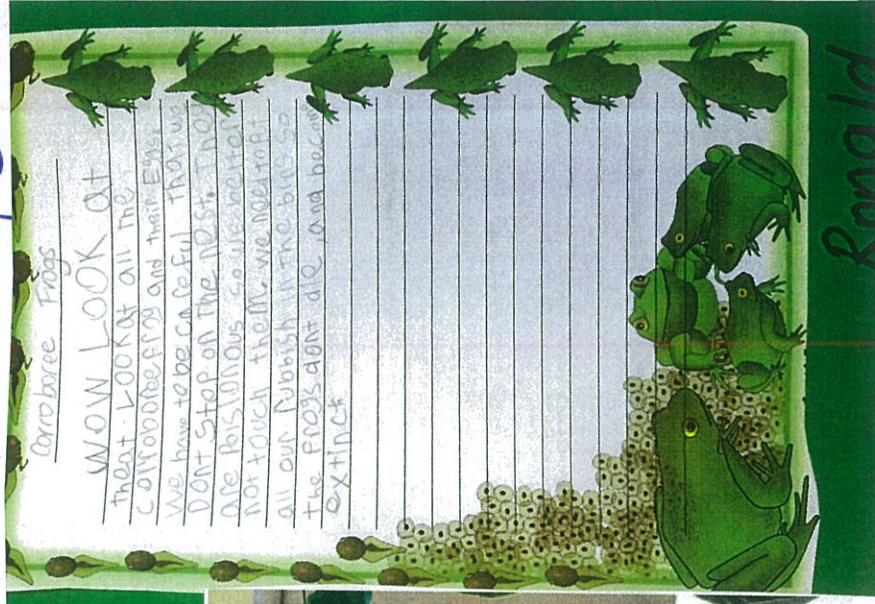 Corroboree Frogs
WOW LOOK at
that LOOK at all the
corroboree frog and their Eggs.
We have to be careful that we
DONt Stop on the nest. They
are Poisionous so we better
not touch them. we need to Pt
all our Rubbish in the bins so
the Frogs dont die, and become
extinct
Ronald